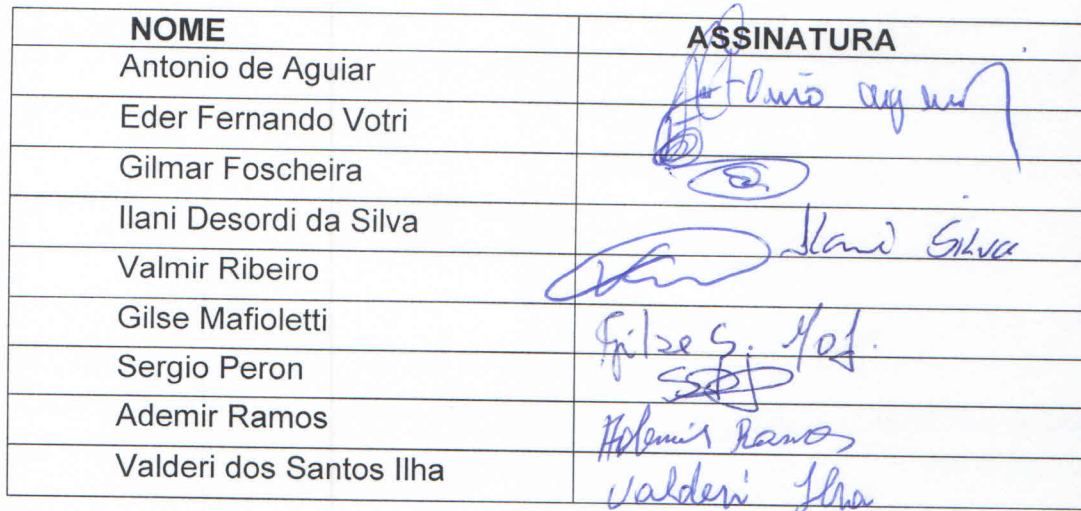 NOME ASSINATURA
Antonio de Aguiar
Eder Fernando Votri
Gilmar Foscheira
Ilani Desordi da Silva Ilani Silva
Valmir Ribeiro
Gilse Mafioletti Gilse S. Maf.
Sergio Peron
Ademir Ramos Ademir Ramos
Valderi dos Santos Ilha Valderi Ilha